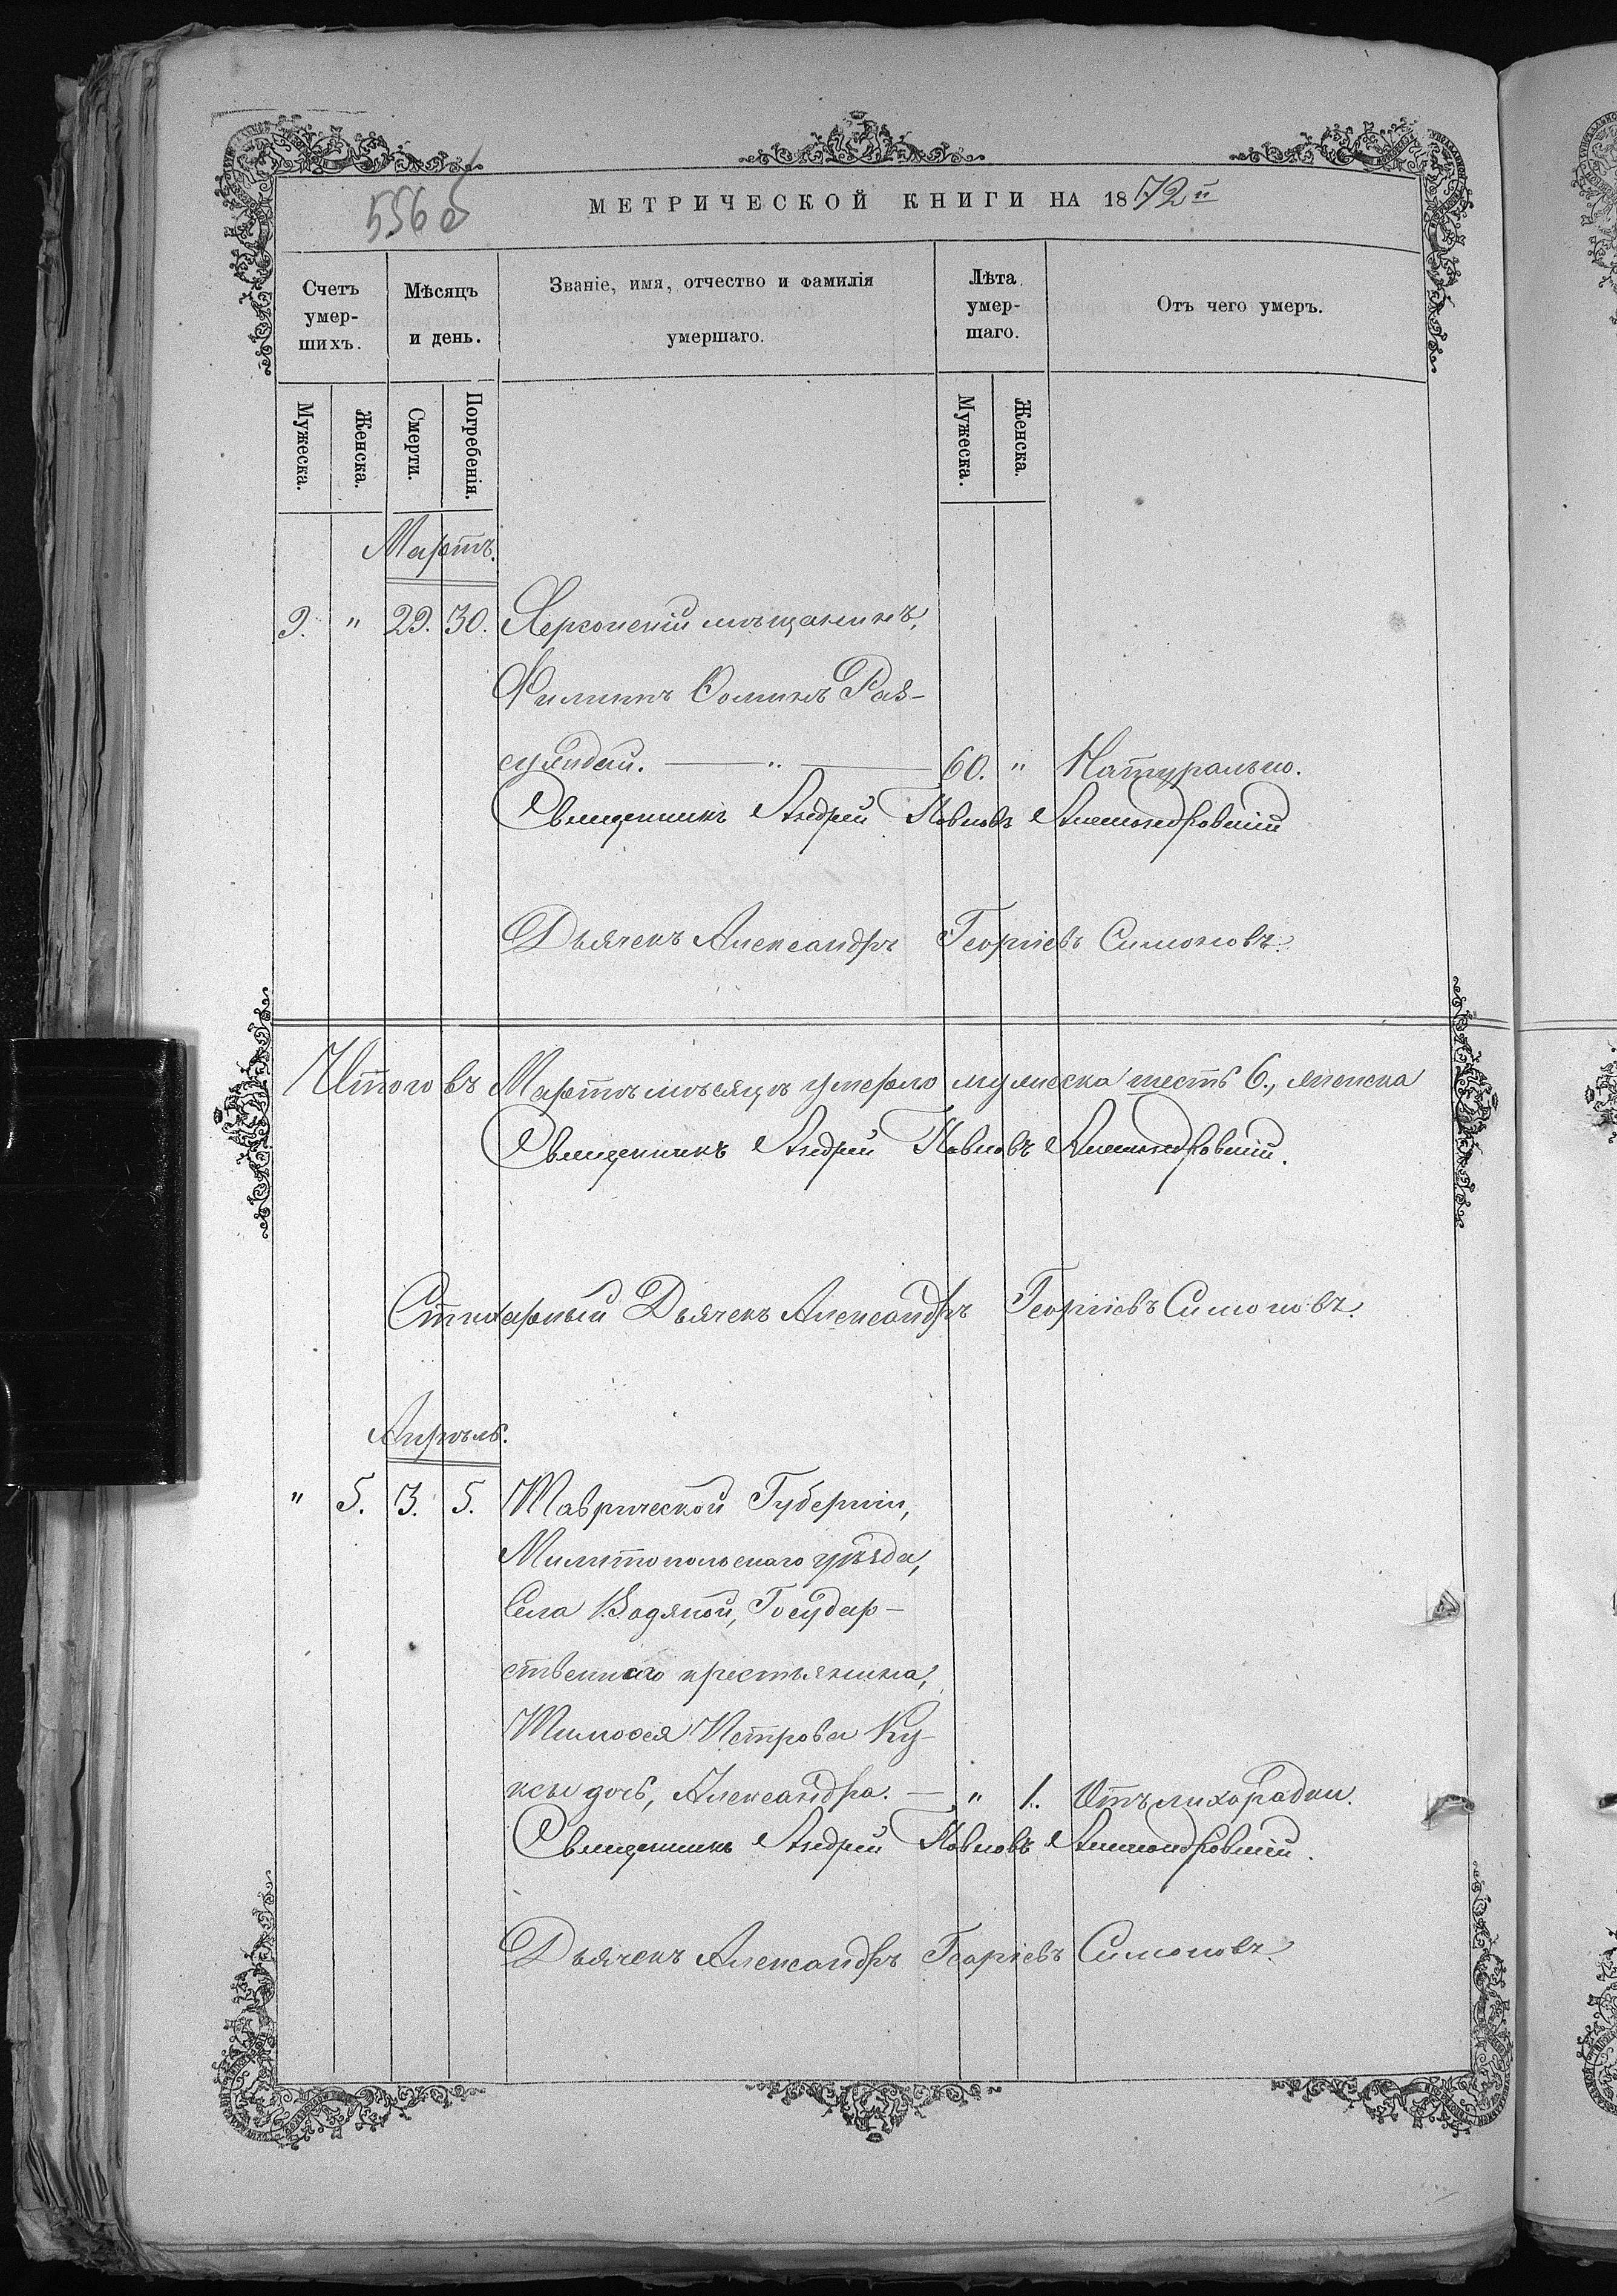 556 об
МЕТРИЧЕСКОЙ КНИГИ НА 1872й
Счетъ умер-шихъ.
Мѣсяцъ и день.
Званіе, имя, отчество и фамилія умершаго.
Лѣта умер-шаго.
Отъ чего умеръ.
Мужеска.
Женска.
Смерти.
Погребенія.
Мужеска.
Женска.
Мартъ.
9. " 29. 30. Херсонскій мѣщанинъ,
Филиппъ Ѳоминъ Раз-
суждай. — " — 60. " Натурально.
Священникъ Андрей Павловъ Александровскій
Дьячекъ Александръ Георгіевъ Симоновъ.
Итого въ Мартѣ мѣсяцѣ умерло мужеска шесть 6., женска
Священникъ Андрей Павловъ Александровскій.
Стихарный Дьячекъ Александръ Георгіевъ Симоновъ.
Апрѣль.
" 5. 3. 5. Таврической Губерніи,
Милитопольскаго уѣзда,
Села Водяной, Государ-
ственнаго крестьянина,
Тимоѳея Петрова Ку-
ксы дочь, Александра. — " 1. Отъ лихорадки.
Священникъ Андрей Павловъ Александровскій.
Дьячекъ Александръ Георгіевъ Симоновъ